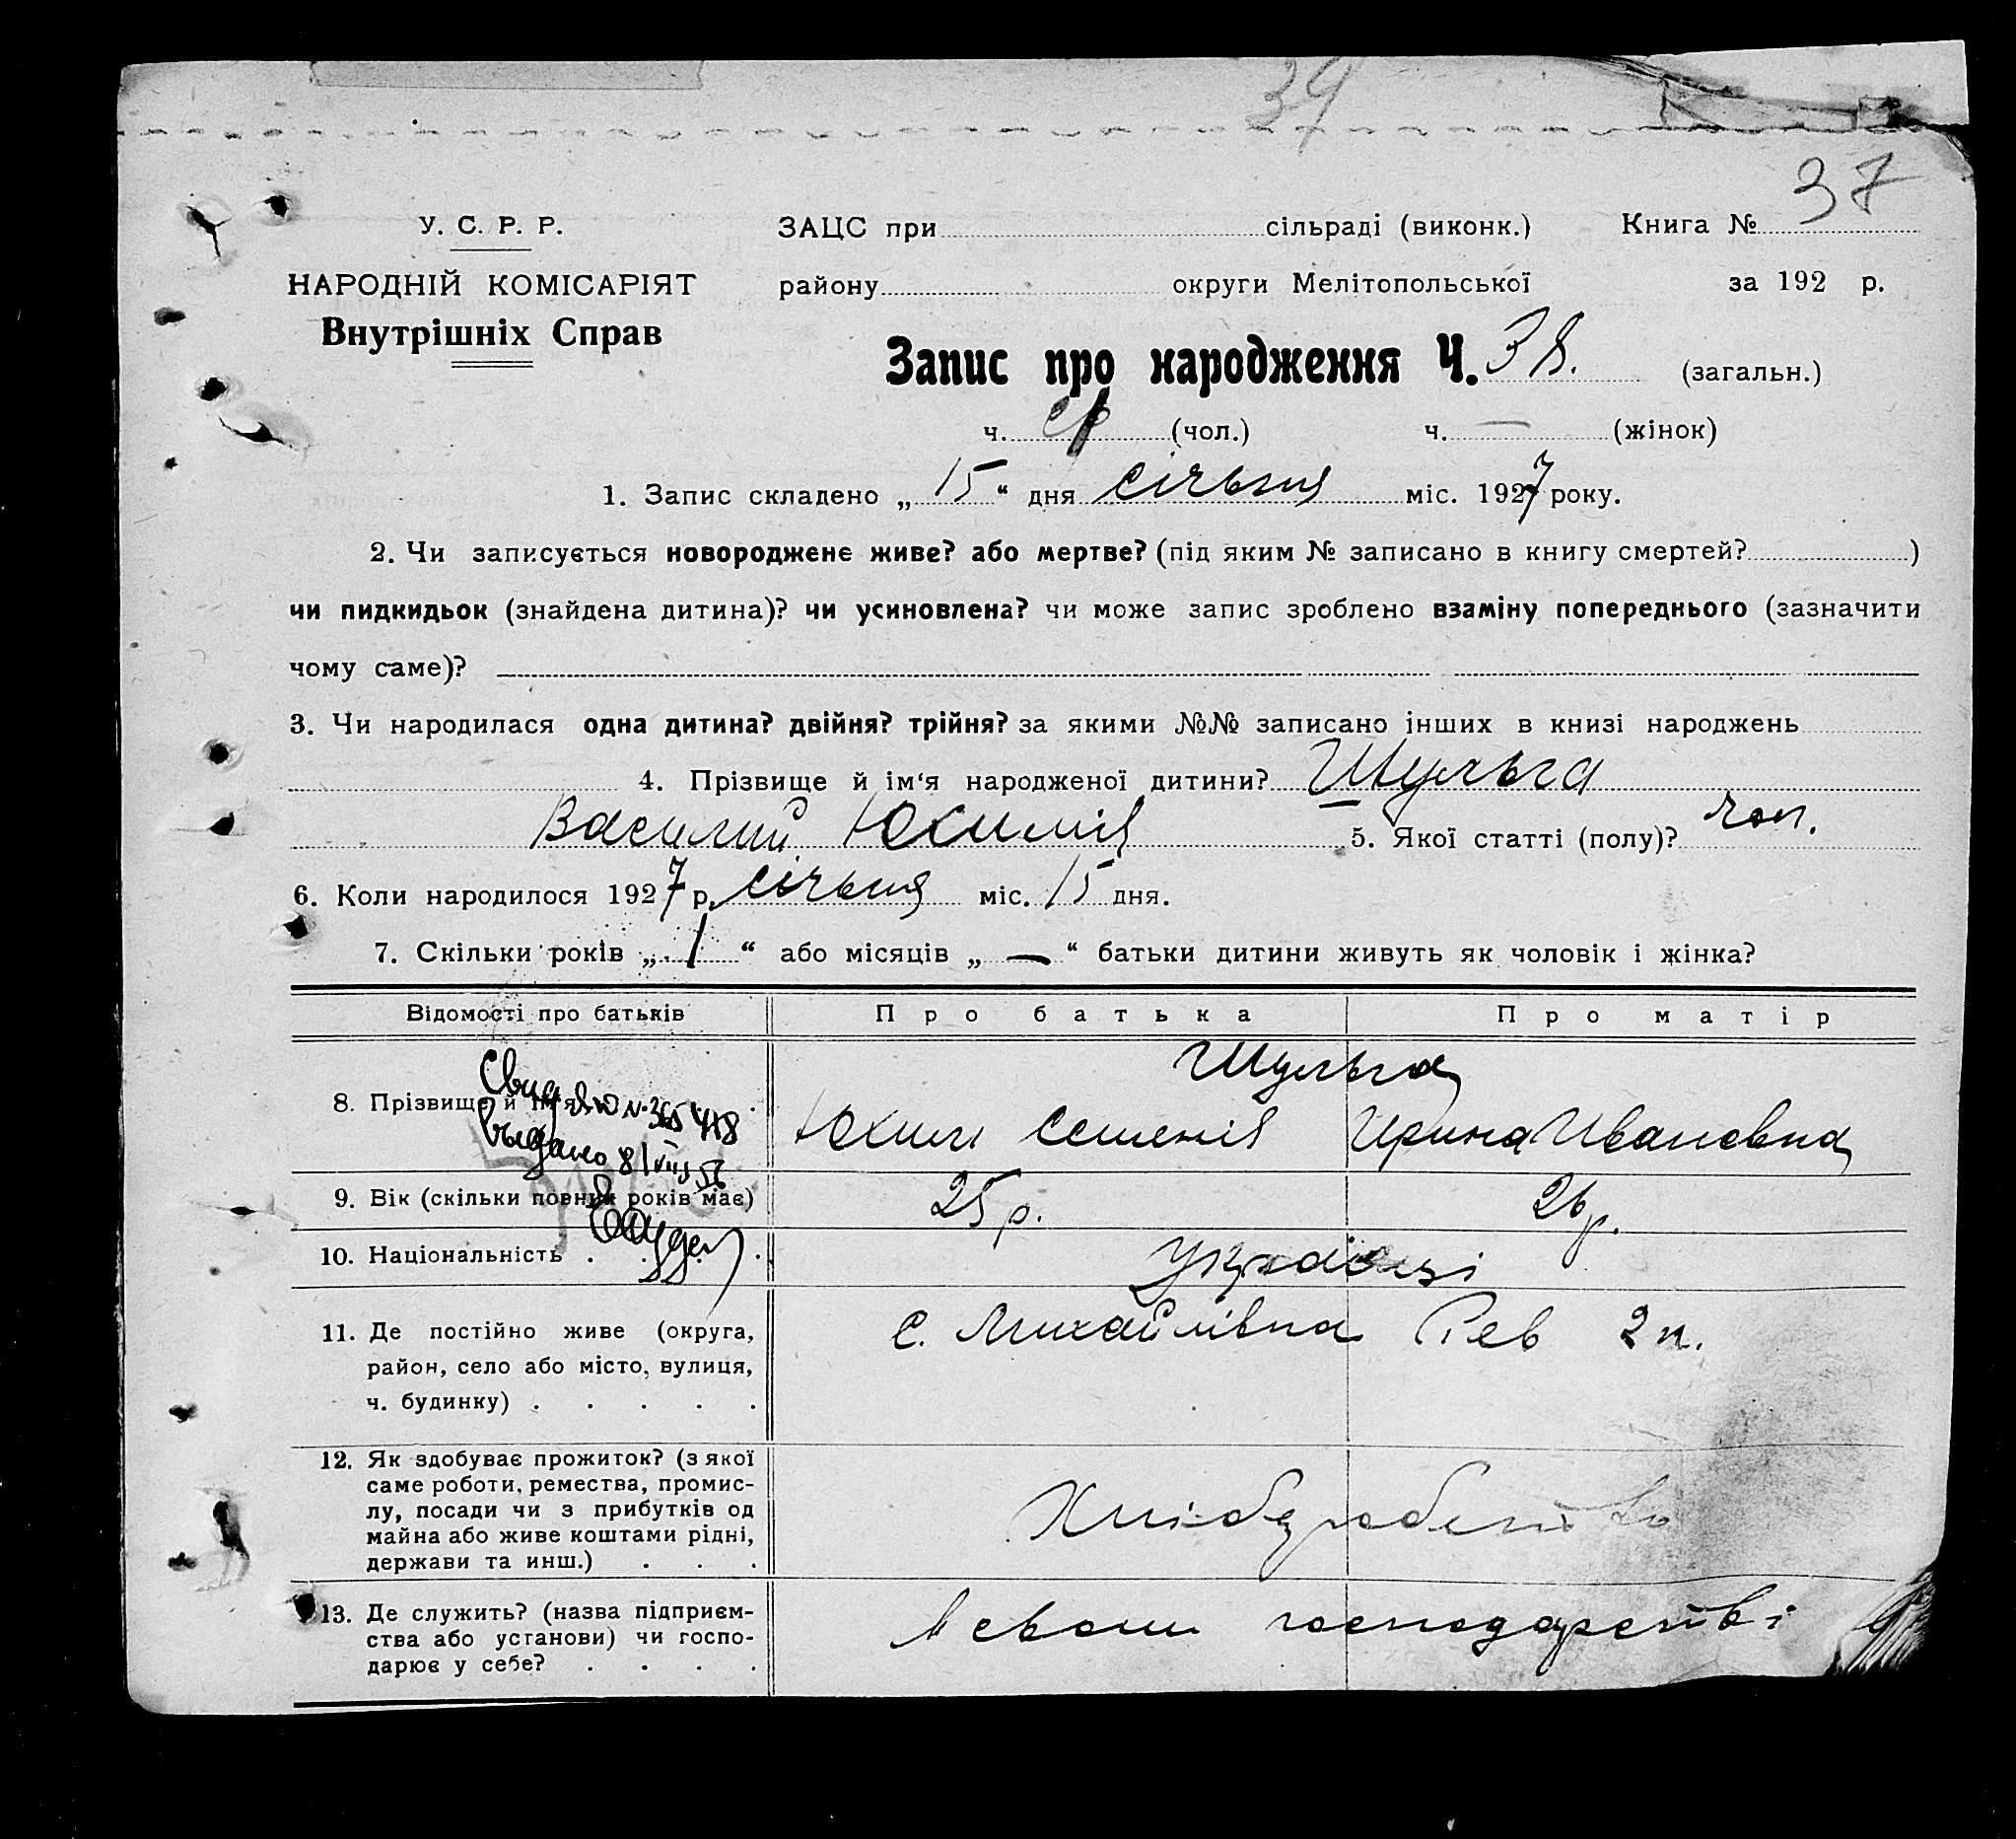 34
37
У. С. Р. Р. ЗАЦС при сільраді (виконк.) Книга №
НАРОДНІЙ КОМІСАРІЯТ району округи Мелітопольської за 192 р.
Внутрішніх Справ
Запис про народження Ч. 38. (загальн.)
ч. (чол.) ч. — (жінок)
1. Запис складено „ 15 “ дня січьня міс. 1927 року.
2. Чи записується новороджене живе? або мертве? (під яким № записано в книгу смертей? )
чи пидкидьок (знайдена дитина)? чи усиновлена? чи може запис зроблено взаміну попереднього (зазначити
чому саме)?
3. Чи народилася одна дитина? двійня? трійня? за якими №№ записано інших в книзі народжень
4. Прізвище й ім‘я народженої дитини? Шульга
Василий Юхимів 5. Якої статті (полу)? чол.
6. Коли народилося 1927 р. січьня міс. 15 дня.
7. Скільки років „ 1 “ або місяців „ — “ батьки дитини живуть як чоловік і жінка?
Відомості про батьків Про батька Про матір
Шульга
8. Прізвище й ім‘я Юхим Семенів Ирина Ивановна
Выдано 8/VII
9. Вік (скільки повних років має) 25 р. 26 р.
10. Національність . Українці
11. Де постійно живе (округа, с. Михайлівка Рев 2 п.
район, село або місто, вулиця,
ч. будинку) . . . . .
12. Як здобуває прожиток? (з якої
саме роботи, ремества, промис-
лу, посади чи з прибутків од Хліборобство
майна або живе коштами рідні,
держави та инш.) . . .
13. Де служить? (назва підприєм- в своем господарстві
ства або установи) чи госпо-
дарює у себе? . . . .